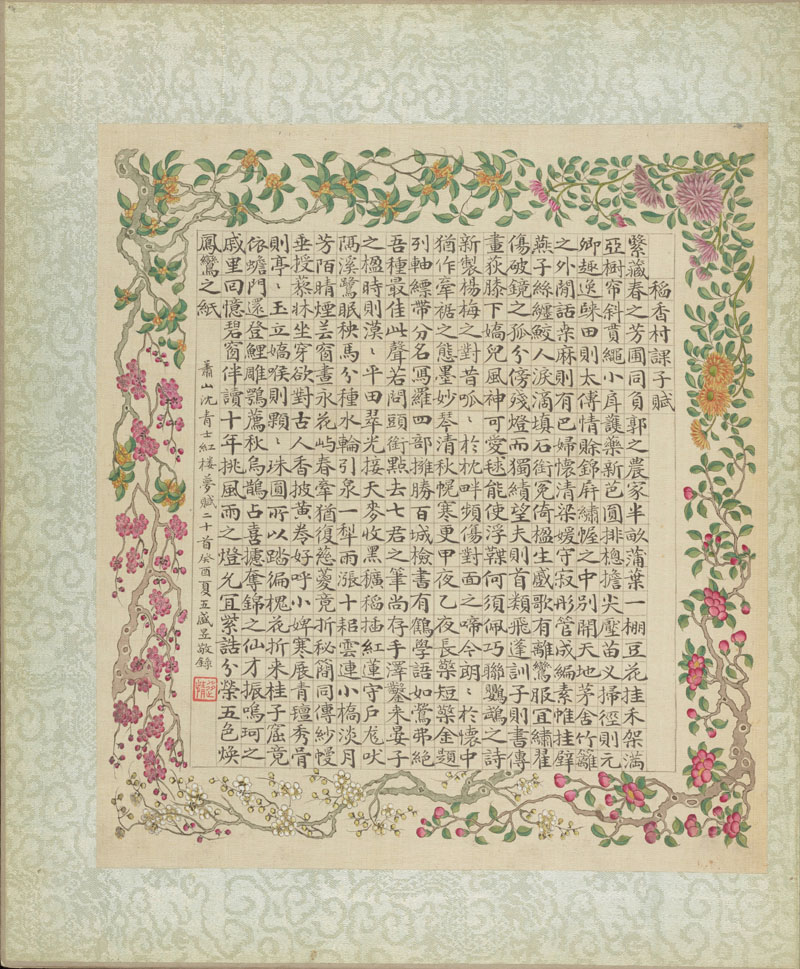 稻香村課子賦
繄藏春之芳圃同負郭之農家半畝蒲葉一棚豆花挂木架滿
亞樹帘斜貫繩小扉護藥新芭圓排擔尖壓苗义掃徑則元
卿趣逸田則太傅情賒錦屏繡幄之中別開天地茅舍竹籬
之外閒話桑麻則有巴婦懷清梁媛守寂彤管成編素帷挂壁
燕子絲纏鮫人淚滴填石銜冤倚楹生戚歌有離鸞服宜繡翟
傷破鏡之孤分傍殘燈而獨績望夫則首類飛蓬訓子則書傳
畫荻膝下嬌兒風神可愛毬能使浮鞢何須佩巧聯鸚鵡之詩
新製楊梅之對昔呱〻於枕畔頻傷對面之啼今朗〻於懷中
猶作牽裾之態墨妙琴清秋幌寒更甲夜乙夜長檠短檠金題
列軸縹帶分名寫羅四部擁勝百城檢書有鶴學語如鶯弗絕
吾種最佳此聲若問頭銜點去七君之筆尚存手澤鑿來晏子
之楹時則漠〻平田翠光接天麥收黑穬稻插紅蓮守戶尨吠
隔溪鷺眠秧馬分種水輪引泉一犁雨漲十耜雲連小橋淡月
芳陌晴煙芸窗晝永花嶼春牽猶復慈蔓竟折秘簡同傳紗幔
垂授藜牀坐穿欲對古人香披黃卷好呼小婢寒展青氈秀骨
則亭〻玉立嬌喉則顆〻珠圓所以踏徧槐花折來桂子窟竟
依蟾門還登鯉雕鶚薦秋烏鵲占喜攄奪錦之仙才振鳴珂之
戚里回憶碧窗伴讀十年挑風雨之燈允宜紫誥分榮五色煥
鳳鸞之紙
蕭山沈青士紅樓夢賦二十首癸酉夏五盛昱敬錄